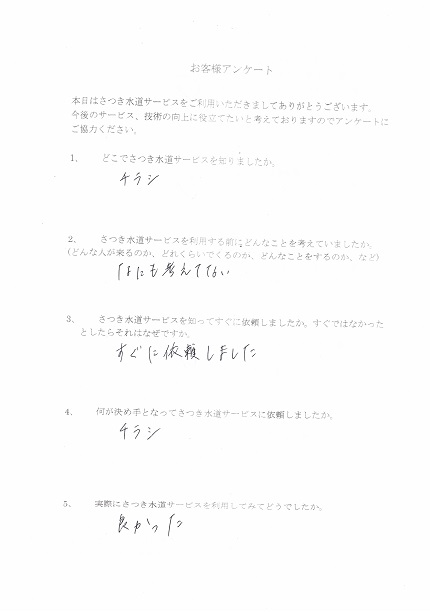 お客様アンケート
本日はさつき水道サービスをご利用いただきましてありがとうございます。
今後のサービス、技術の向上に役立てたいと考えておりますのでアンケートに
ご協力ください。
1、 どこでさつき水道サービスを知りましたか。
チラシ
2、 さつき水道サービスを利用する前にどんなことを考えていましたか。
(どんな人が来るのか、どれくらいでくるのか、どんなことをするのか、など)
なにも考えてない
3、 さつき水道サービスを知ってすぐに依頼しましたか。すぐではなかった
としたらそれはなぜですか。
すぐに依頼しました
4、 何が決め手となってさつき水道サービスに依頼しましたか。
チラシ
5、 実際にさつき水道サービスを利用してみてどうでしたか。
良かった